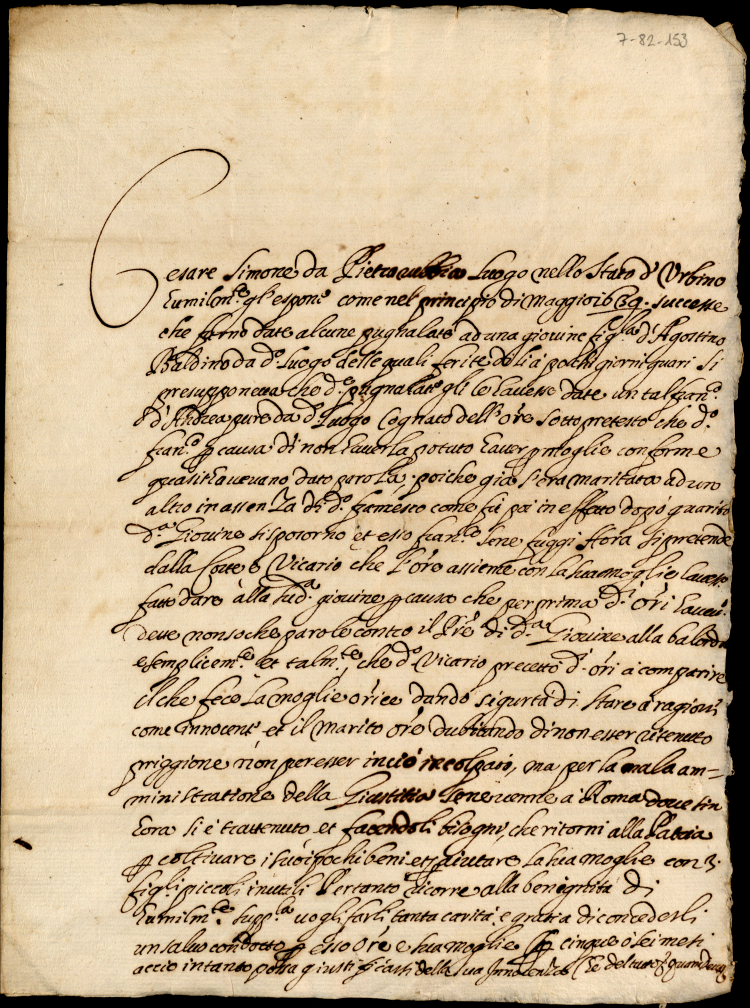 7-82-153
Cesare Simone da Pietrarubbia luogo nello Stato d'Urbino
humilm.te gl'espone come nel principio di Maggio 1639. successe
che furno date alcune pugnalate ad una giovine fig.la d'Agostino
Baldino da d.o luogo delle quali ferite doli à pochi giorni guarì si
presupponeva che d.e pugnalate gli le havesse date un tal fran.o
d'Andrea pure da d.o luogo Cognato dell'ōre sotto pretesto che d.o
fran.o p causa di non haverla potuto haver p moglie conforme
quasi havevano dato parola. poiche già s'era maritata ad uno
altro in assenza di d.o come fù poi in effetto dopò guarito
d.a Giovine si sposorno et esso fran.co sene fuggì hora si pretende
dalla Corte ò Vicario che l'ōre assieme con la sua moglie havesse
fatto dare alla sud.a giovine p causa che per prima d.i ōri
dette non so che parole contro il Pr̄e di d.a Giovine alla balorda
e semplicem.te et talm.te, che d.o Vicario precettò d.i ōri à comparire
il che fece la moglie ōrice dando sigurtà di stare à ragioni
come innocente et il marito ōre dubitando di non esser ritenuto
priggione non per esser in ciò incolpato, ma per la mala am-
ministratione della Giustitia sene venne à Roma dove sin
hora si è trattenuto et facendoli bisogni, che ritorni alla Patria
p coltivare i suoi pochi beni et p aiutare la sua moglie con 3.
figli piccoli inutili Pertanto ricorre alla benignità di
humilm.te supp.la vogli farli tanta carità e gratia di concederli
un salvo condotto p esso Ōre e sua moglie p cinque ò sei mesi
acciò intanto possa giustificarsi della sua Innocenza Che del tutto